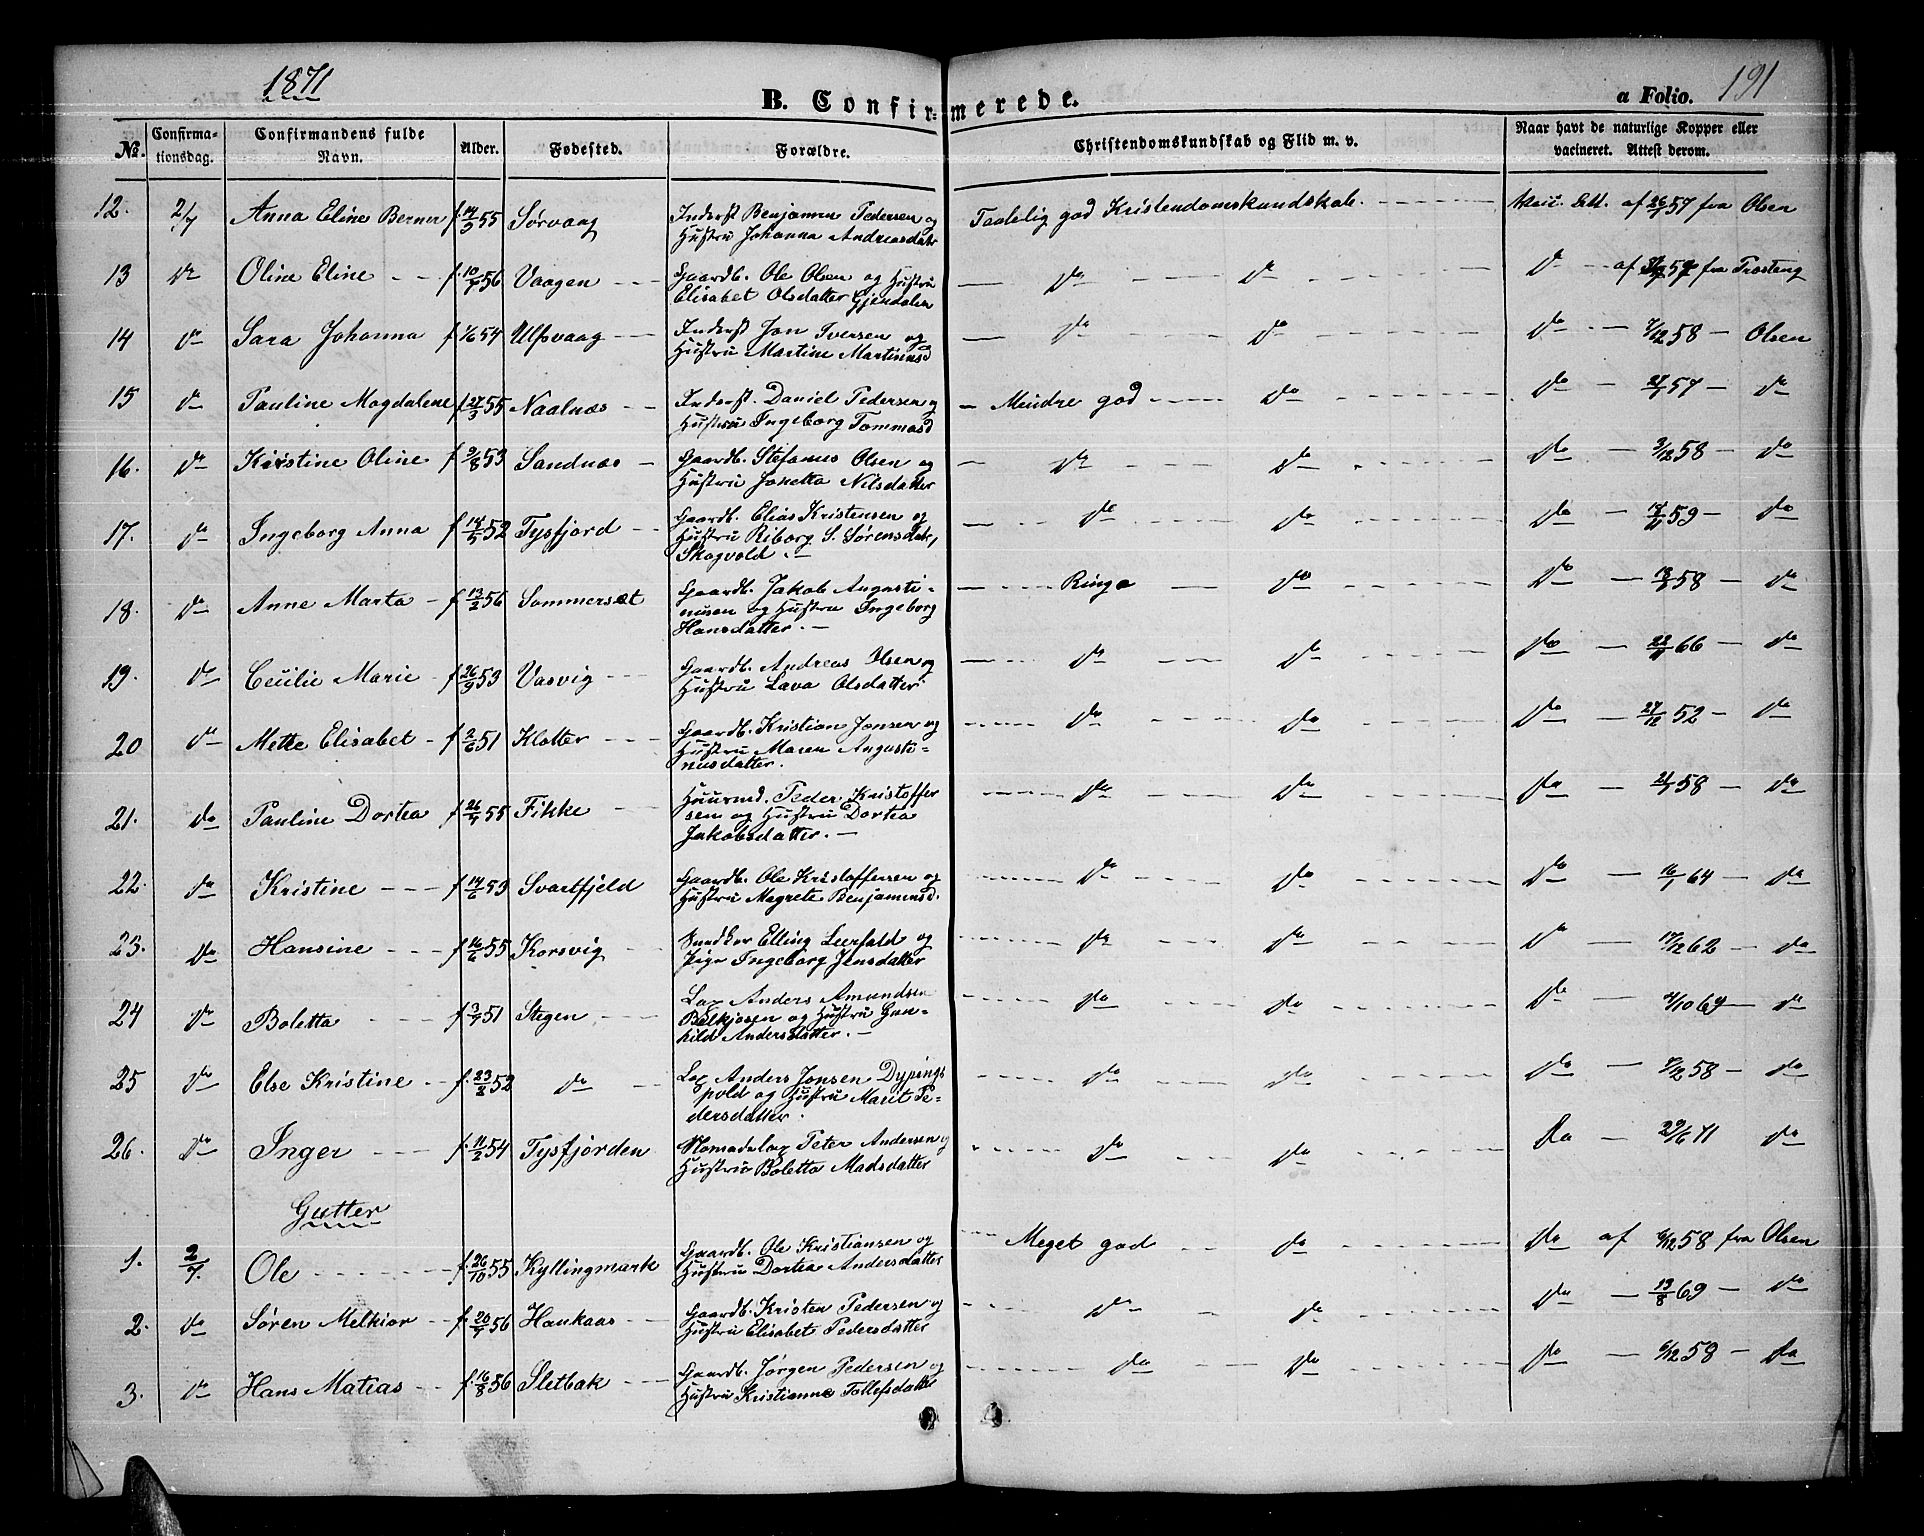 1871
B. Confirmerede.
a Folio. 191
No. Confirmationsdag. Confirmandens fulde Navn. Alder. Fødested. Forældre. Christendomskundskab og Flid m. v. Naar havt de naturlige Kopper eller vacineret. Attest derom.
12. 2/7 Anna Eline Berner f. 14/3 55 Sørvaag Inderst Benjamin Pedersen og Hustru Johanna Andreasdatr Taalelig god Kristendomskundskab. Attest af 26/7 57 fra Olsen
13 do Oline Eline f. 10/7 56 Vaagen Gaardb. Ole Olsen og Hustru Elisabet Olsdatter Gjendalen do do do af 57 fra
14 do Sara Johanna f. 1/6 54 Ulfsvaag Inderst Jon Iversen og Hustru Martine Martinusd do do do 7/12 58 Olsen
15 do Pauline Magdalene f. 27/3 55 Naalnæs Inderst. Daniel Pedersen og Hustru Ingeborg Tommasd Mindre god do do 57 do
16. do Kirstine Oline f. 9/8 53 Sandnæs Gaardb. Stefanus Olsen og Hustru Jonetta Nilsdatter do do do 9/12 58 do
17. do Ingeborg Anna f. 14/5 52 Tysfjord Gaardb. Elias Kristensen og Hustru Riborg S. Sørensdatr, Skogvold. do do do 59 do
18. do Anne Marta f. 13/2 56 Sommersæt Gaardb. Jakob Augustinusen og Hustru Ingeborg Hansdatter. Ringe do do 58 do
19. do Cecilie Marie f. 26/9 53 Vasvig Gaardb. Andreas Olsen og Hustru Lava Olsdatter do do do 66 do
20 do Mette Elisabet f. 2/6 51 Klotter Gaardb. Kristian Jonsen og Hustru Maren Augustinusdatter. do do do 27/12 52 do
21. do Pauline Dortea f. 26/7 55 Fikke Huusmd. Peder Kristoffersen og Hustru Dortea Jakobsdatter. do do do 58 do
22. do Kristine f. 14/6 53 Svartfjeld Gaardb. Ole Kristoffersen og Hustru Magrete Benjaminsd. do do do 16/1 64 do
23. do Hansine f. 16/6 55 Korsvig Elling Leerfald og Pige Ingeborg Jensdatter do do do 17/12 62 do
24 do Boletta f. 3/7 51 Stegen Lap Anders Amundsen og Hustru Gunhild Andersdatter. do do do 4/10 69 do
25 do Else Kristine f. 23/2 52 do Lap Anders Jonsen Dypingspold og Hustru Marit Pedersdatter. do do do 7/12 58 do
26. do Inger f. 11/2 54 Tysfjorden Nomadelap Peter Andersen og Hustru Boletta Madsdatter do do do 29/6 71 do
Gutter
1. 2/7. Ole f. 26/10 55 Kyllingmark Gaardb. Ole Kristiansen og Hustru Dortea Andersdatter Meget god do do af 6/12 58 fra Olsen
2. do Søren Melkior f. 20/7 56 Haukaas Gaardb. Kristen Pedersen og Hustru Elisabet Pedersdatter do do do 13/8 69 do
3. do Hans Matias f. 16/8 56 Sletbak Gaardb. Jørgen Pedersen og Hustru Kristianne Tollefsdatte do do do 6/12 58 do